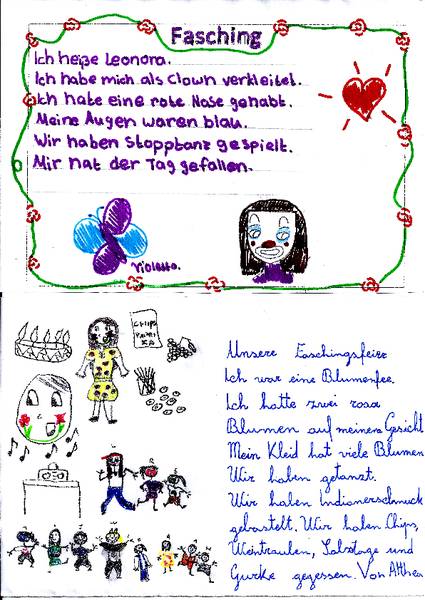 Fasching
Ich heiße Leonora.
Ich habe mich als Clown verkleitet.
Ich hate eine rote Nose gehabt.
Meine Augen waren blau.
Wir haben Stopptanz gespielt.
Mir hat der Tag gefallen.
Violetta.
CHIPS
Unsere Faschingsfeier
Ich war eine Blumenfee.
Ich hatte zwei rosa
Blumen auf meinem Gesicht
Mein Kleid hat viele Blumen
Wir haben getanzt.
Wir haben Indianerschmuck
gebastelt. Wir haben Chips,
Weintrauben, Salzstage und
Gurke gegessen. Von Althea